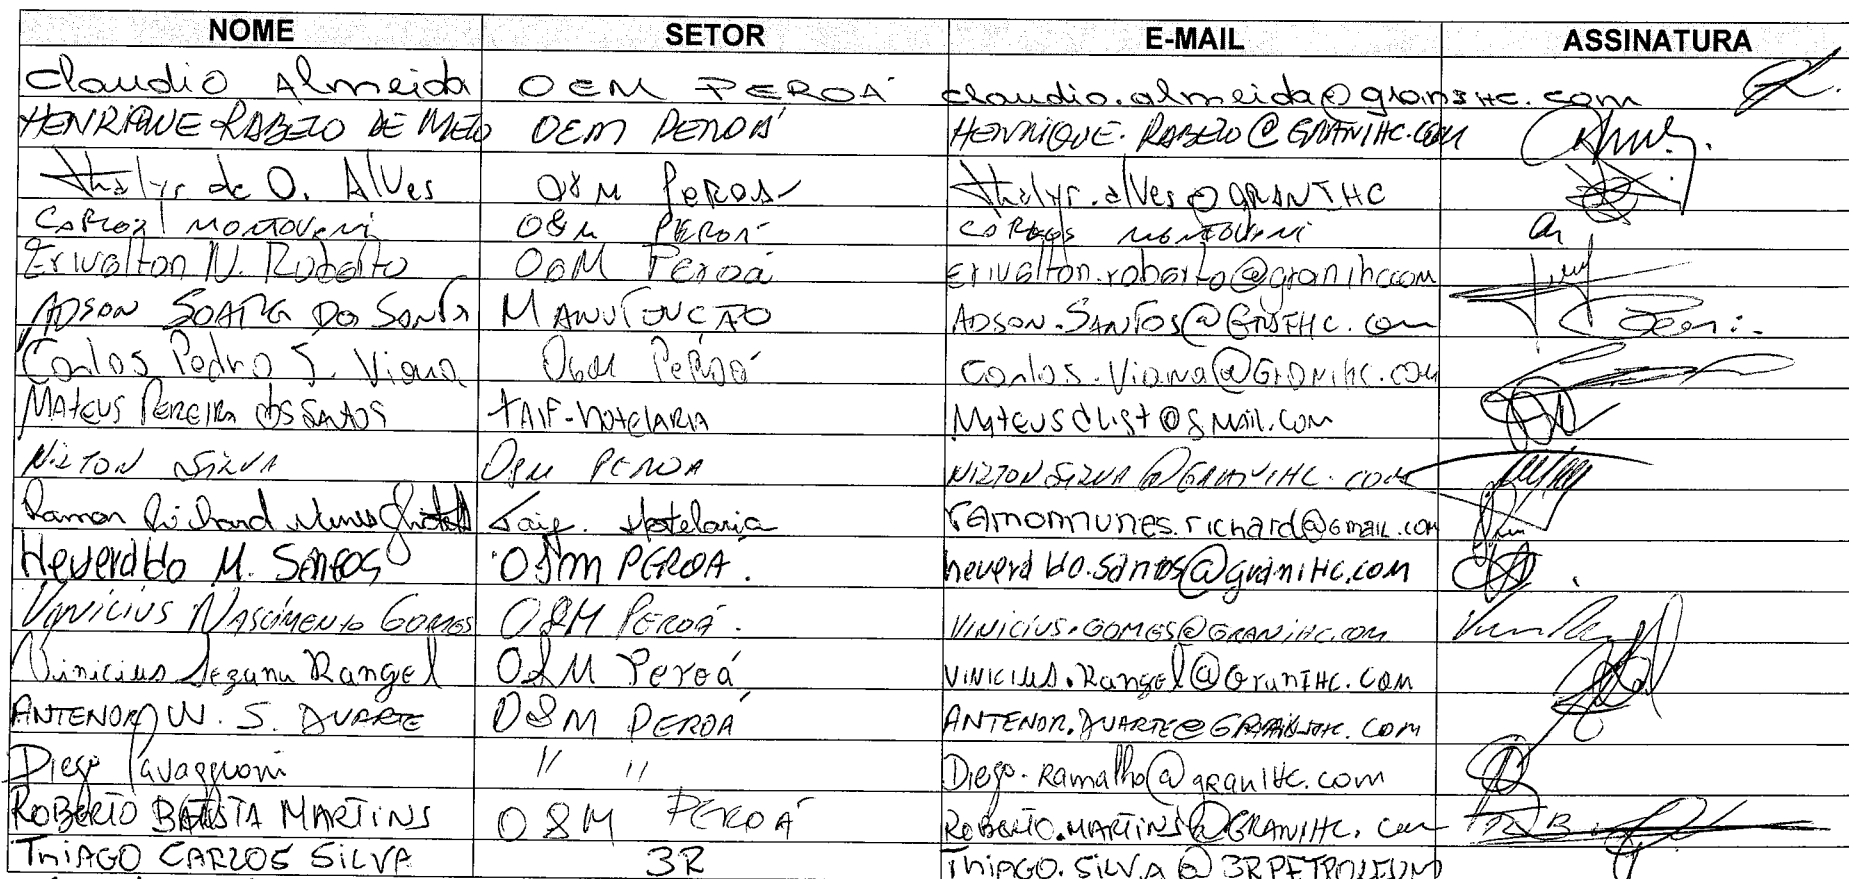 NOME SETOR E-MAIL ASSINATURA
Claudio Almeida OEM PEROÁ claudio.almeida@granihc.com
HENRIQUE RABELO DE MELO OEM PEROÁ HENRIQUE.RABELO@GRANIHC.COM
Thalyr de O. Alves O&M Peroá thalyr.alves@GRANIHC
CARLOS MONTOVANI O&M PEROÁ CARLOS MONTOVANI
Erivalton N. Roberto O&M Peroá Erivalton.roberto@granihc.com
ADSON SOARES DOS SANTOS MANUTENÇÃO ADSON.SANTOS@GRANIHC.com
Carlos Pedro S. Viana O&M Peroá Carlos.Viana@GRANIHC.COM
MATEUS PEREIRA DOS SANTOS TAIF-HOTELARIA Mateusdlist@gmail.com
NILTON SILVA O&M PEROÁ NILTONSILVA@GRANIHC.com
Ramon Richard Nunes Taif. Hotelaria ramonnunes.richard@gmail.com
Heveraldo M. Santos O&M PEROÁ. heveraldo.santos@granIHC.com
VINÍCIUS NASCIMENTO GOMES O&M PEROÁ. VINICIUS.GOMES@GRANIHC.com
Vinicius Rangel O&M Peroá VINICIUS.Rangel@GranIHC.COM
ANTENOR W. S. DUARTE O&M PEROÁ ANTENOR.DUARTE@GRANIHC.COM
Diego Pavagnoni " " Diego.Ramalho@granIHC.com
ROBERTO BATISTA MARTINS O&M PEROÁ ROBERTO.MARTINS@GRANIHC.com
THIAGO CARLOS SILVA 3R THIAGO.SILVA@3RPETROLEUM